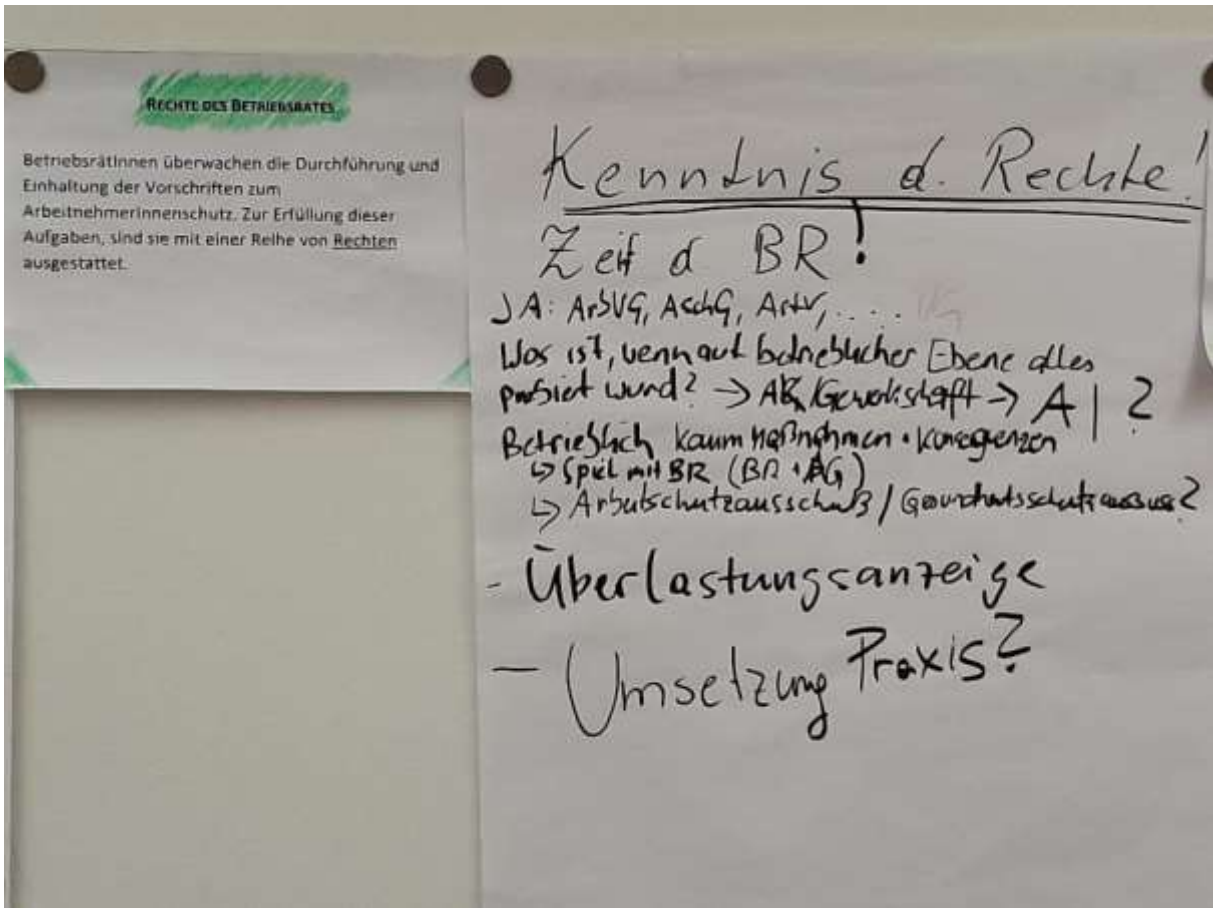 RECHTE DES BETRIEBSRATES
BetriebsrätInnen überwachen die Durchführung und
Einhaltung der Vorschriften zum
ArbeitnehmerInnenschutz. Zur Erfüllung dieser
Aufgaben, sind sie mit einer Reihe von Rechten
ausgestattet.
Kenntnis d. Rechte!
Zeit d BR!
JA: ArbVG, AschG, ....
Was ist, wenn auf betrieblicher Ebene alles
wurd? → AK/Gewerkschaft → AI?
Betrieblich kaum Maßnahmen
↳ Spiel mit BR (BR + AG)
↳ Arbeitschutzausschuß /
- Überlastungsanzeige
- Umsetzung Praxis?